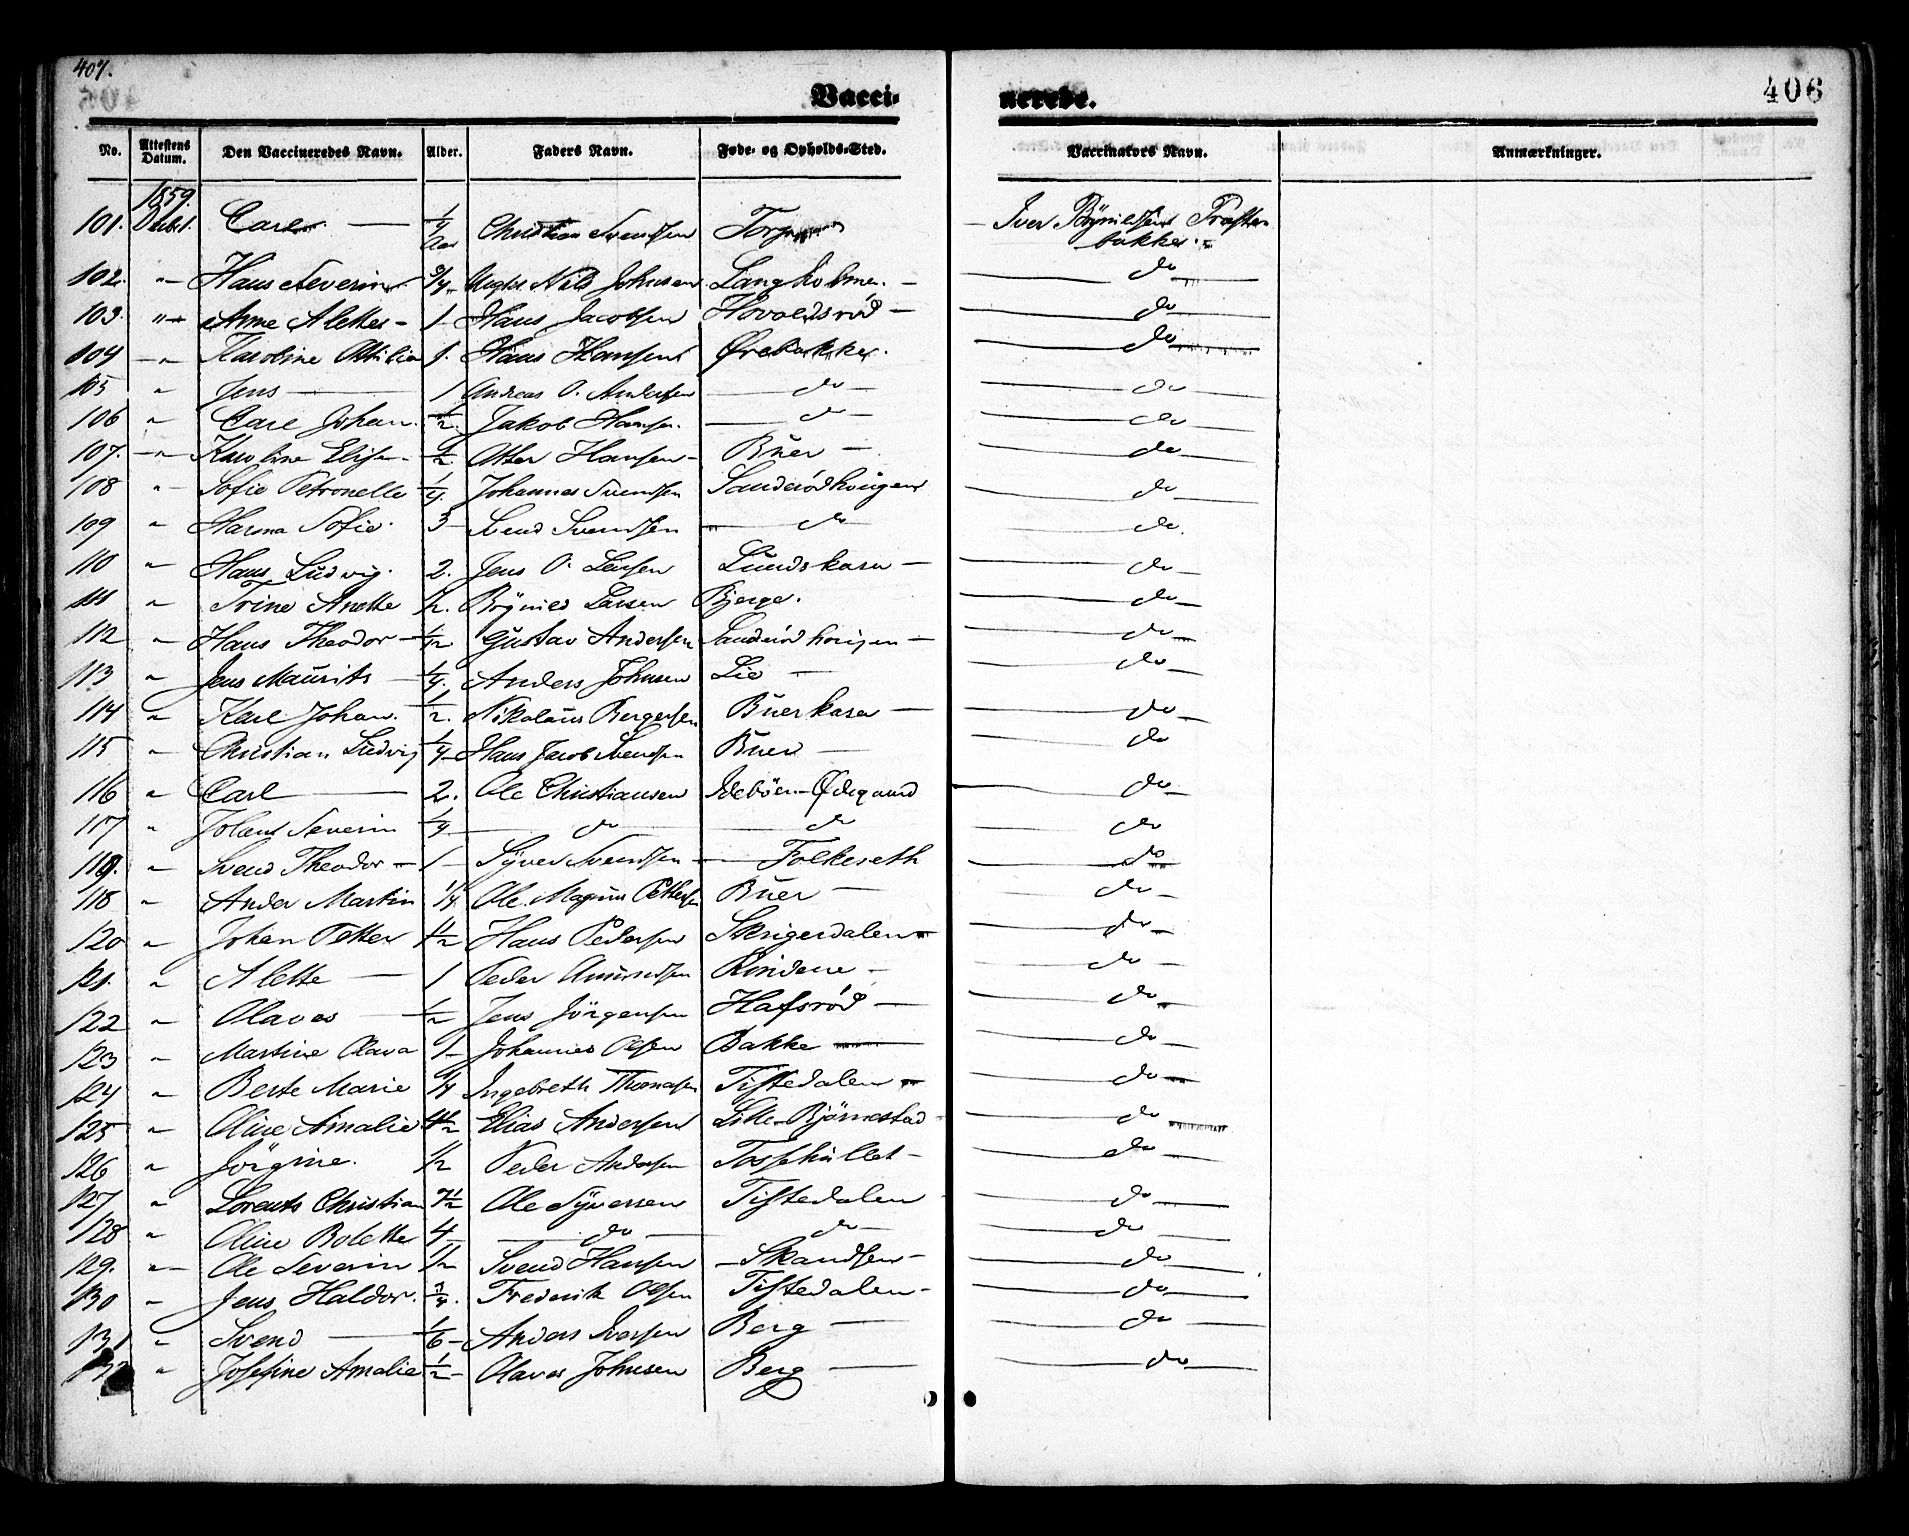 407.
406
Vacci-
nerede.
No. Attestens Datum. Den Vaccineredes Navn. Alder. Faders Navn. Føde- og Opholds-Sted. Vaccinators Navn. Anmærkninger.
1859.
101. Decbr 1. Carl — 1/4 Aar Christian Svendsen Torp — Iver Brynildsen Præste-
bakke.
102. " Hans Severin 3/4 Nils Johnsen Langholmen. — do
103. " Anne Alette 1 Hans Jacobsen Hovaldsrød — do
104 " Karoline Ottilia 1. Hans Hansen Ørebakke. do
105 " Jens — 1 Andreas O. Andersen — do — do
106 " Carl Johan. 1/2. Jakob Hansen. — do — do
107. " Karoline Elise — 1/2 Otter Hansen — Buer — do
108 " Sofie Petronelle 1/4. Johannes Svendsen Sanderødhougen do
109 " Harma Sofie. 3 Svend Svendsen — do do.
110 " Hans Ludvig. 2. Jens O. Larsen Lundskasa — do
111 " Trine Anette 1/2. Brynild Larsen Bjerge. do
112 " Hans Theodor — 1/12 Gustav Andersen Sanderødhougen — do
113 " Jens Maurits — 1/4. Anders Johnsen Lie — do
114 " Karl Johan. 1/2. Nikolaus Bergersen Buerkasa — do
115 " Christian Ludvig 1/4 Hans Jacob Svendsen Buer — do
116 " Carl — 2. Ole Christiansen Idebøen-Ødegaard do.
117 " Johan Severin 1/4 — do — do do
119. " Svend Theodor — 1 — Syver Svendsen — Folkeseth do
118 " Ander Martin 1/4 Ole Magnus Pettersen Buer — do
120 " Johan Petter 1 1/2 Hans Pedersen Skrigerdalen do
121. " Alette — 1 Peder Amundsen Rindene — do
122 " Olaves — 1/2 Jens Jørgensen Hafsrød — do
123 " Martine Olava 1 — Johannes Olsen Bakke — do
124 " Berte Marie 1/4 Ingebreth Thomasen Tistedalen do
125 " Oline Amalie 1 1/2 Elias Andersen Lille-Bjørnestad do
126 " Jørgine. 1/2 Peder Andersen Tossehullet — do
127 " Lorents Christian 7 1/2 Ole Syversen Tistedalen do
128 " Oline Bolette 4 — do — do — do
129. " Ole Severin 1/2 Svend Hansen — Skandsen — do
130 " Jens Haldor. 3/4. Frederik Olsen Tistedalen — do
131 " Svend — 1/6 — Anders Iversen Berg — do
" Josefine Amalie 1/2 — Olaves Johnsen Berg — do